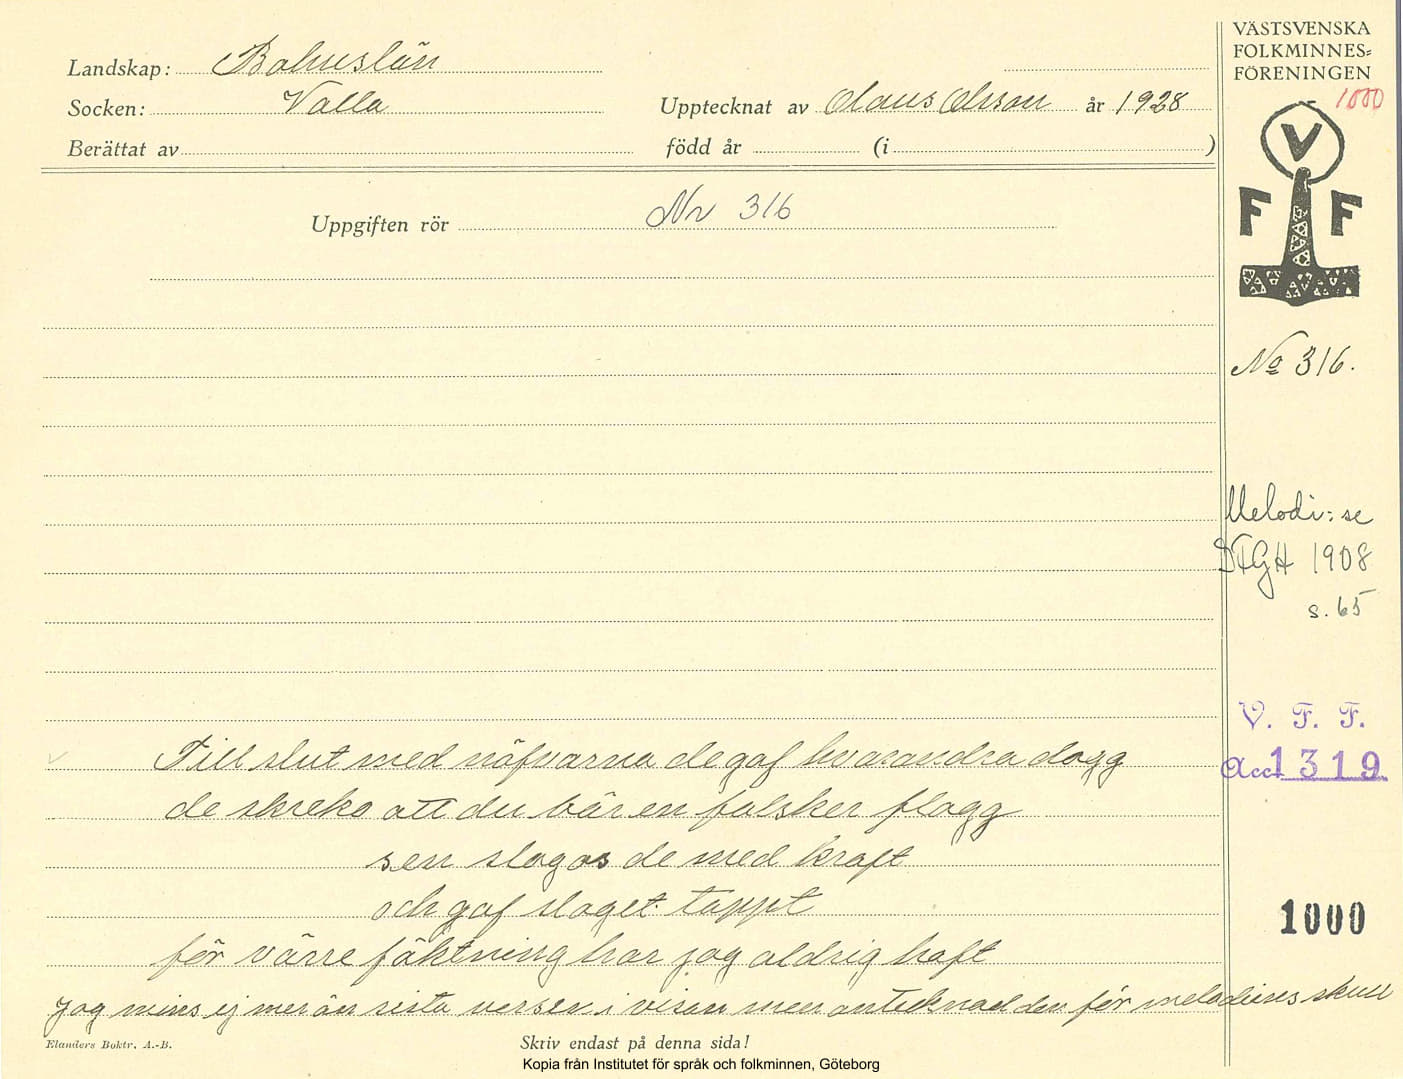 Landskap: Bohuslän
Socken: Valla
Upptecknat av Olaus Olsson år 1928
Berättat av
född år (i )
Uppgiften rör Nr 316
VÄSTSVENSKA
FOLKMINNES=
FÖRENINGEN
1000
V
F F
No 316.
Melodi: se
1908
s. 65
V. F. F.
Acc 1319
1000
Till slut med näfvarna de gaf hvarandra dagg
de skreko att du bär en falsker flagg
sen slogos de med kraft
och gaf slaget tappt
för värre fäktning har jag aldrig haft
Jag mins ej mer än sista versen i visan men antecknad den för melodiens skull
Elanders Boktr. A.-B.
Skriv endast på denna sida!
Kopia från Institutet för språk och folkminnen, Göteborg